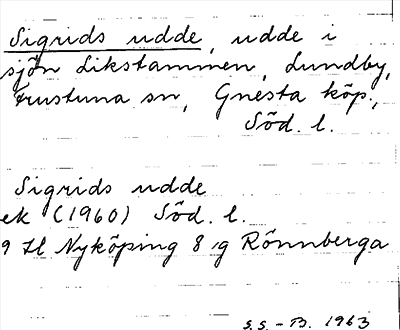 Sigrids udde, udde i
sjön Likstammen, Lundby,
Frustuna sn, Gnesta köp.,
Söd. l.
Sigrids udde
ek (1960) Söd. l.
9 H Nyköping 8 g Rönnberga
S.S. - B. 1963